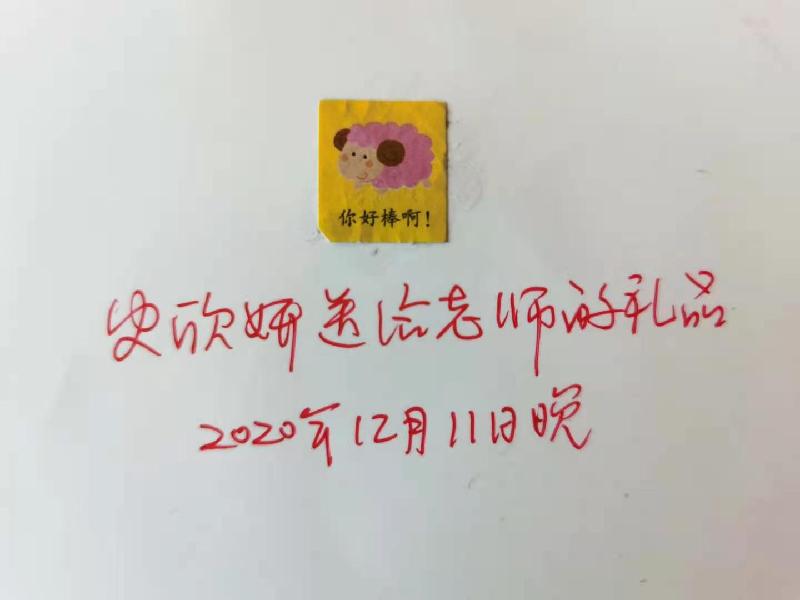 你好棒啊!
史欣妍送给老师的礼品
2020年12月11日晚